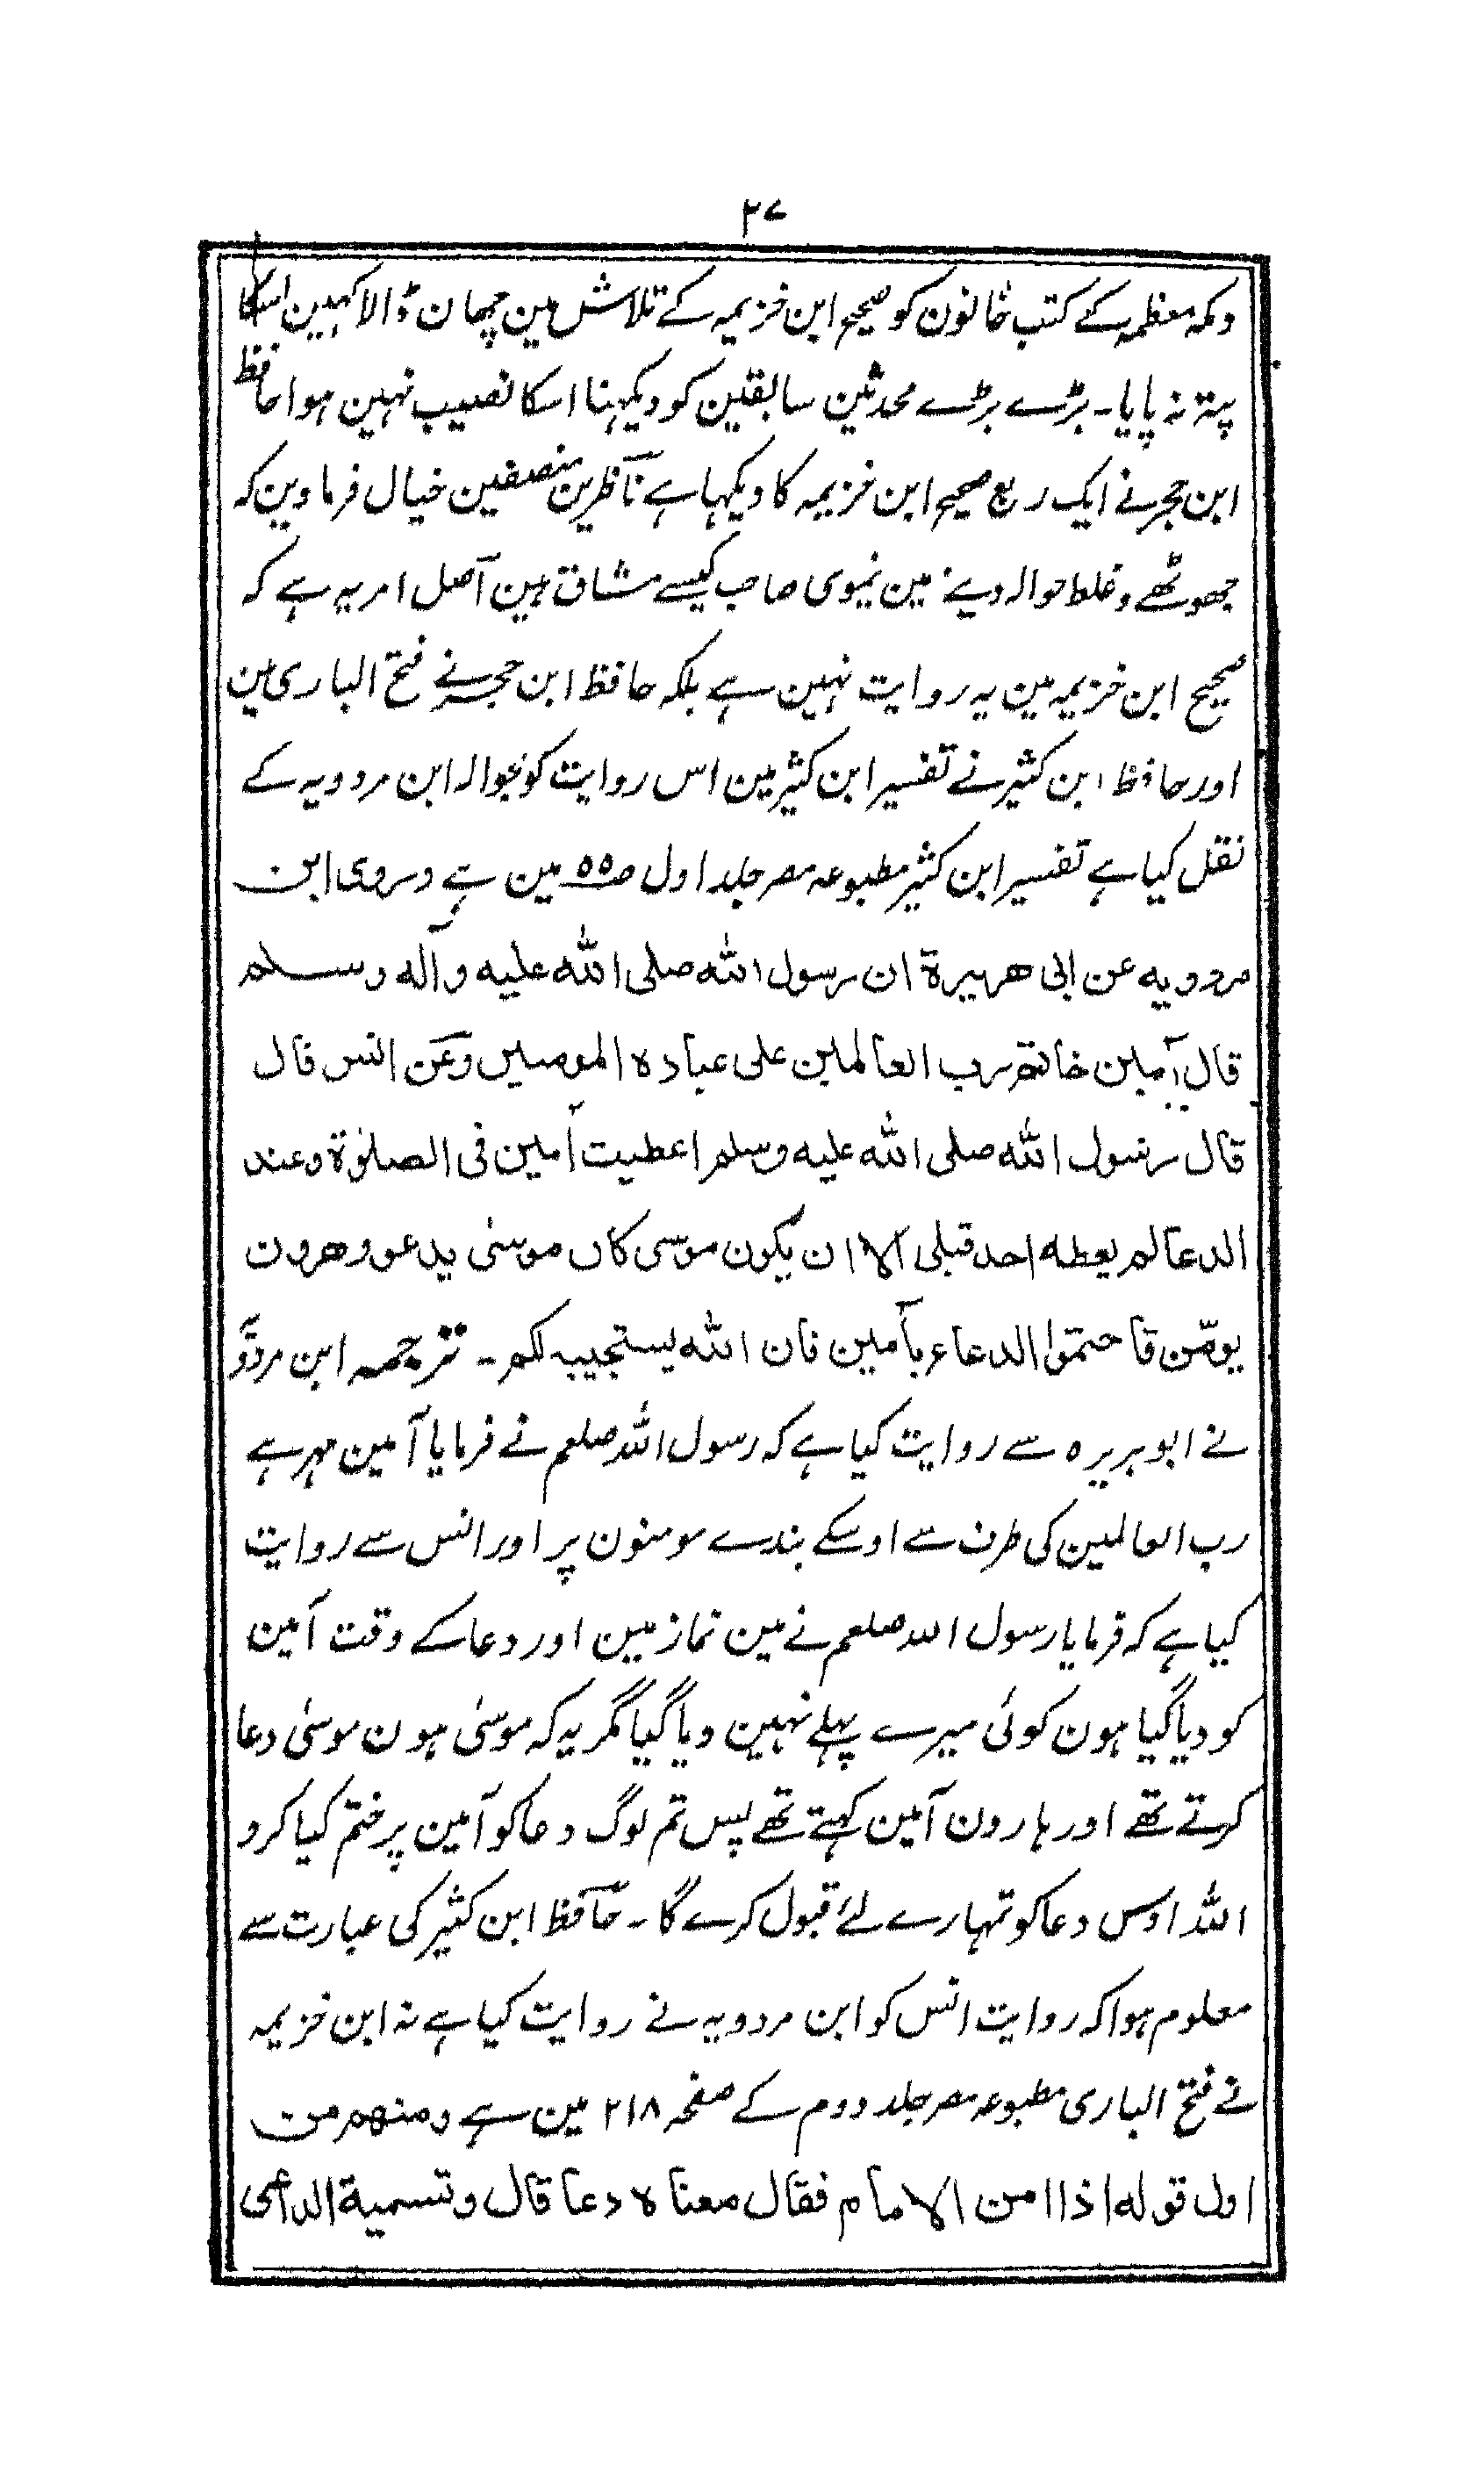 ۲۷
ومکہ معظمہ کے کتب خانون کو صحیح ابن خزیمہ کے تلاش مین چھان ڈالا کہین اسکا
پتہ نہ پایا۔ بڑے بڑے محدثین سابقین کو دیکہنا اسکا نصیب نہین ہوا حافظ
ابن حجر نے ایک ربع صحیح ابن خزیمہ کا دیکہا ہے ناظرین منصفین خیال فرماوین کہ
جھوٹھے و غلط حوالہ دینے مین نیموی صاحب کیسے مشاق ہین آصل امر یہ ہے کہ
صحیح ابن خزیمہ مین یہ روایت نہین ہے بلکہ حافظ ابن حجر نے فتح الباری مین
اور حافظ ابن کثیر نے تفسیر ابن کثیر مین اس روایت کو بحوالہ ابن مردویہ کے
نقل کیا ہے تفسیر ابن کثیر مطبوعہ مصر جلد اول ص۵۵ مین ہے وروی ابن
مردویه عن ابی هریرة ان رسول الله صلی الله علیه وآله وسلم
قال آمین خاتم رب العالمین علی عباده المومنین وعن انس قال
قال رسول الله صلی الله علیه وسلم اعطیت آمین فی الصلوٰة وعند
الدعا لم یعطه احد قبلی الا ان یکون موسی کان موسٰی یدعو وهرون
یومّن فاختموا الدعاء بآمین فان الله یستجیبه لکم۔ ترجمہ ابن مردو
نے ابوہریرہ سے روایت کیا ہے کہ رسول اللہ صلعم نے فرمایا آمین مہر ہے
رب العالمین کی طرف سے اوسکے بندے مومنون پر اور انس سے روایت
کیا ہے کہ فرمایا رسول اللہ صلعم نے مین نماز مین اور دعا کے وقت آمین
کو دیا گیا ہون کوئی میرے پہلے نہین دیا گیا مگر یہ کہ موسٰی ہون موسٰی دعا
کرتے تھے اور ہارون آمین کہتے تھے پس تم لوگ دعا کو آمین پر ختم کیا کرو
اللہ اوس دعا کو تمہارے لئے قبول کرے گا۔ حافظ ابن کثیر کی عبارت سے
معلوم ہوا کہ روایت انس کو ابن مردویہ نے روایت کیا ہے نہ ابن خزیمہ
نے فتح الباری مطبوعہ مصر جلد دوم کے صفحہ ۲۱۸ مین ہے ومنهم من
اول قوله اذا امن الامام فقال معناه دعا قال وتسمیة الداعی